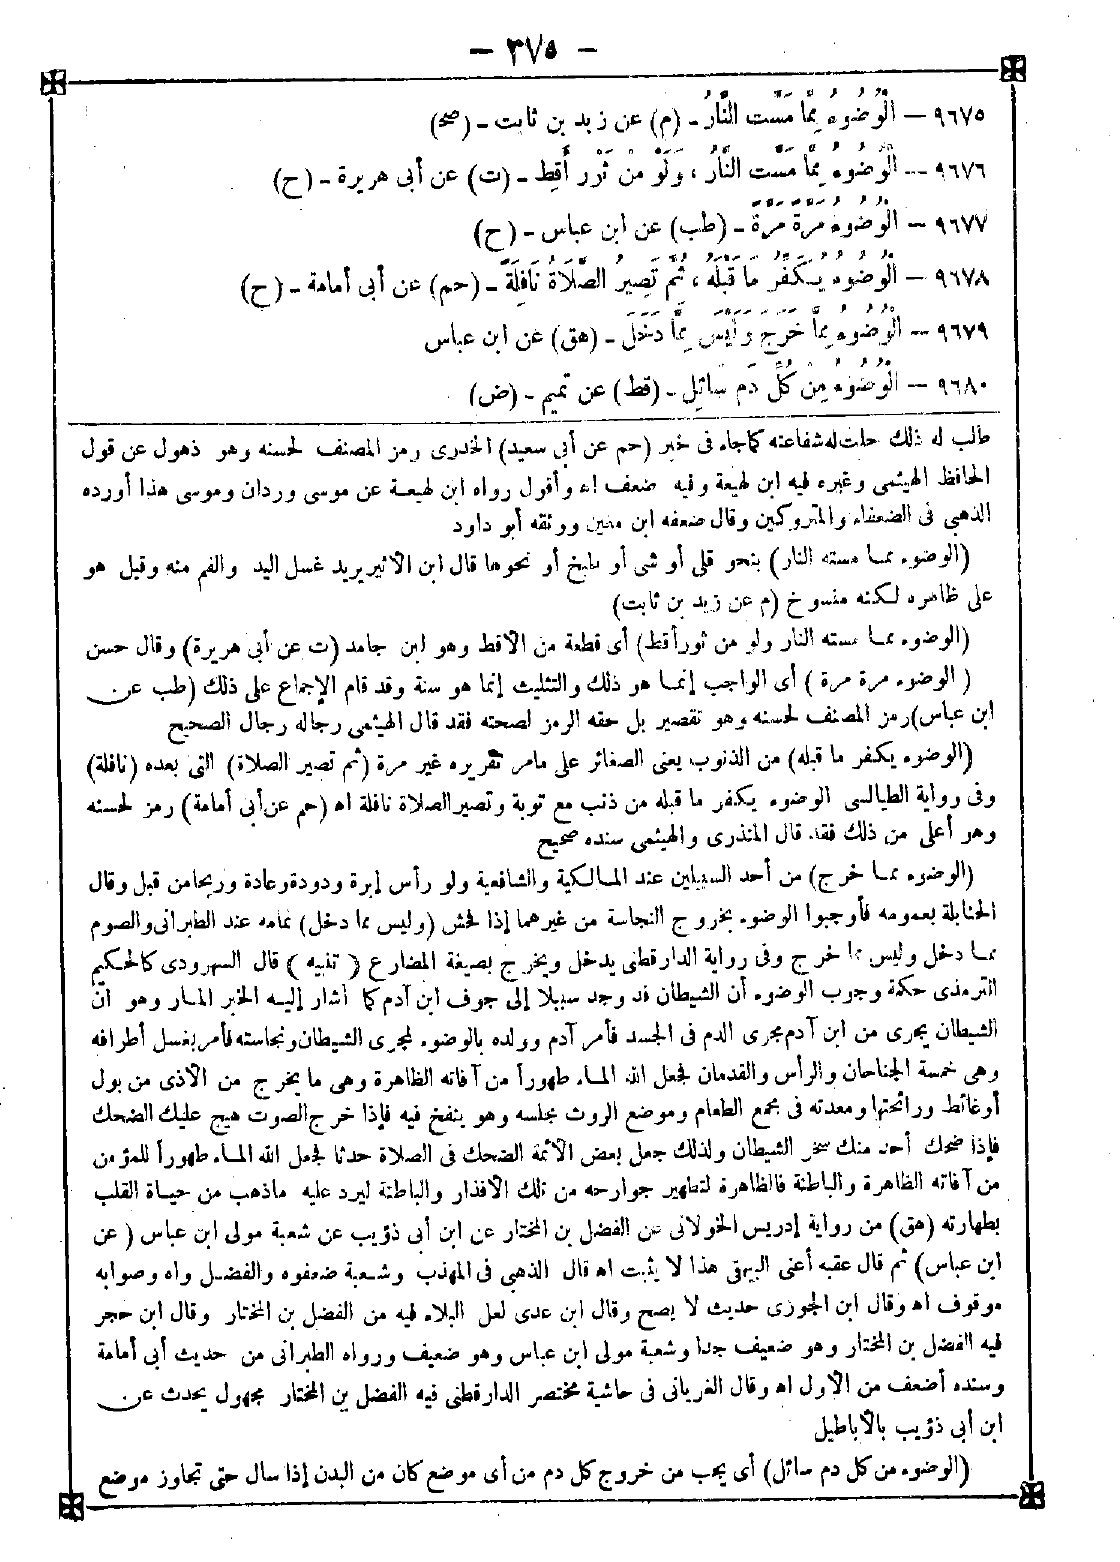 — ٣٧٥ —
٩٦٧٥ — الْوُضُوءُ مِمَّا مَسَّتِ النَّارُ - (م) عن زيد بن ثابت - (صح)
٩٦٧٦ — الْوُضُوءُ مِمَّا مَسَّتِ النَّارُ ، وَلَوْ مِنْ ثَوْرِ أَقِطٍ - (ت) عن أبى هريرة - (ح)
٩٦٧٧ — الْوُضُوءُ مَرَّةً مَرَّةً - (طب) عن ابن عباس - (ح)
٩٦٧٨ — الْوُضُوءُ يُكَفِّرُ مَا قَبْلَهُ ، ثُمَّ تَصِيرُ الصَّلَاةُ نَافِلَةً - (حم) عن أبى أمامة - (ح)
٩٦٧٩ — الْوُضُوءُ مِمَّا خَرَجَ وَلَيْسَ مِمَّا دَخَلَ - (هق) عن ابن عباس
٩٦٨٠ — الْوُضُوءُ مِنْ كُلِّ دَمٍ سَائِلٍ - (قط) عن تميم - (ض)
طلب له ذلك حلت له شفاعته كما جاء فى خبر (حم عن أبى سعيد) الخدرى رمز المصنف لحسنه وهو ذهول عن قول
الحافظ الهيثمى وغيره فيه ابن لهيعة وفيه ضعف اه وأقول رواه ابن لهيعة عن موسى وردان وموسى هذا أورده
الذهبى فى الضعفاء والمتروكين وقال ضعفه ابن معين ووثقه أبو داود
(الوضوء مما مسته النار) بنحو قلى أو شى أو طبخ أو نحوها قال ابن الأثير يريد غسل اليد والفم منه وقيل هو
على ظاهره لكنه منسوخ (م عن زيد بن ثابت)
(الوضوء مما مسته النار ولو من ثور أقط) أى قطعة من الأقط وهو لبن جامد (ت عن أبى هريرة) وقال حسن
(الوضوء مرة مرة) أى الواجب إنما هو ذلك والتثليث إنما هو سنة وقد قام الإجماع على ذلك (طب عن
ابن عباس) رمز المصنف لحسنه وهو تقصير بل حقه الرمز لصحته فقد قال الهيثمى رجاله رجال الصحيح
(الوضوء يكفر ما قبله) من الذنوب يعنى الصغائر على مامر تقريره غير مرة (ثم تصير الصلاة) التى بعده (نافلة)
وفى رواية الطيالسى الوضوء يكفر ما قبله من ذنب مع توبة وتصير الصلاة نافلة اه (حم عن أبى أمامة) رمز لحسنه
وهو أعلى من ذلك فقد قال المنذرى والهيثمى سنده صحيح
(الوضوء مما خرج) من أحد السبيلين عند المالكية والشافعية ولو رأس إبرة ودودة وعادة وريحا من قبل وقال
الحنابلة بعمومه فأوجبوا الوضوء بخروج النجاسة من غيرهما إذا فحش (وليس مما دخل) تمامه عند الطبرانى والصوم
مما دخل وليس مما خرج وفى رواية الدارقطنى يدخل ويخرج بصيغة المضارع (تنبيه) قال السهرودى كالحكيم
الترمذى حكمة وجوب الوضوء أن الشيطان قد وجد سبيلا إلى جوف ابن آدم كما أشار إليه الخبر المار وهو أنّ
الشيطان يجرى من ابن آدم مجرى الدم فى الجسد فأمر آدم وولده بالوضوء لمجرى الشيطان ونجاسته فأمر بغسل أطرافه
وهى خمسة الجناحان والرأس والقدمان فجعل الله الماء طهوراً من آفاته الظاهرة وهى ما يخرج من الأذى من بول
أو غائط ورائحتها ومعدته فى مجمع الطعام وموضع الروث مجلسه وهو ينفخ فيه فإذا خرج الصوت هيج عليك الضحك
فإذا ضحك أحد منك سخر الشيطان ولذلك جعل بعض الأئمة الضحك فى الصلاة حدثا فجعل الله الماء طهوراً للمؤمن
من آفاته الظاهرة والباطنة فالظاهرة لتطهير جوارحه من تلك الأقذار والباطنة ليرد عليه ماذهب من حياة القلب
بطهارته (هق) من رواية إدريس الخولانى عن الفضل بن المختار عن ابن أبى ذؤيب عن شعبة مولى ابن عباس (عن
ابن عباس) ثم قال عقبه أعنى البيهقى هذا لا يثبت اه قال الذهبى فى المهذب وشعبة ضعفوه والفضل واه وصوابه
موقوف اه وقال ابن الجوزى حديث لا يصح وقال ابن عدى لعل البلاء فيه من الفضل بن المختار وقال ابن حجر
فيه الفضل بن المختار وهو ضعيف جدا وشعبة مولى ابن عباس وهو ضعيف ورواه الطبرانى من حديث أبى أمامة
وسنده أضعف من الأول اه وقال الغريانى فى حاشية مختصر الدارقطنى فيه الفضل بن المختار مجهول يحدث عن
ابن أبى ذؤيب بالأباطيل
(الوضوء من كل دم سائل) أى يجب من خروج كل دم من أى موضع كان من البدن إذا سال حتى تجاوز موضع